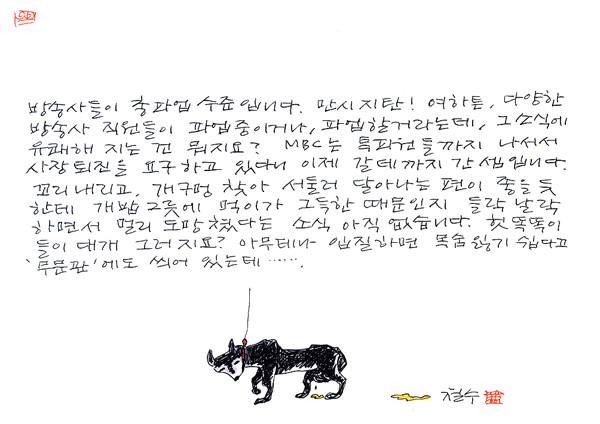 방송사들이 총파업 수준입니다. 만시지탄! 여하튼, 다양한
방송사 직원들이 파업중이거나, 파업할거라는데, 그 소식에
유쾌해 지는 건 뭐지요? MBC는 특파원들까지 나서서
사장퇴진을 요구하고 있다니 이제 갈데까지 간 셈입니다.
꼬리내리고, 개구멍 찾아 서둘러 달아나는 편이 좋을 듯
한데 개밥그릇에 먹이가 그득한 때문인지 들락 날락
하면서 멀리 도망쳤다는 소식 아직 없습니다. 헛똑똑이
들이 대개 그러지요? 아무데나 입질하면 목숨 잃기 쉽다고
'무문관'에도 씌어 있는데......
철수